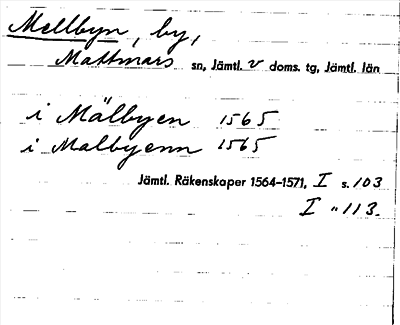 Mellbyn, by,
Mattmars sn, Jämtl. v doms. tg, Jämtl. län
i Mälbyen 1565
i Malbyenn 1565
Jämtl. Räkenskaper 1564-1571, I s. 103
I " 113.